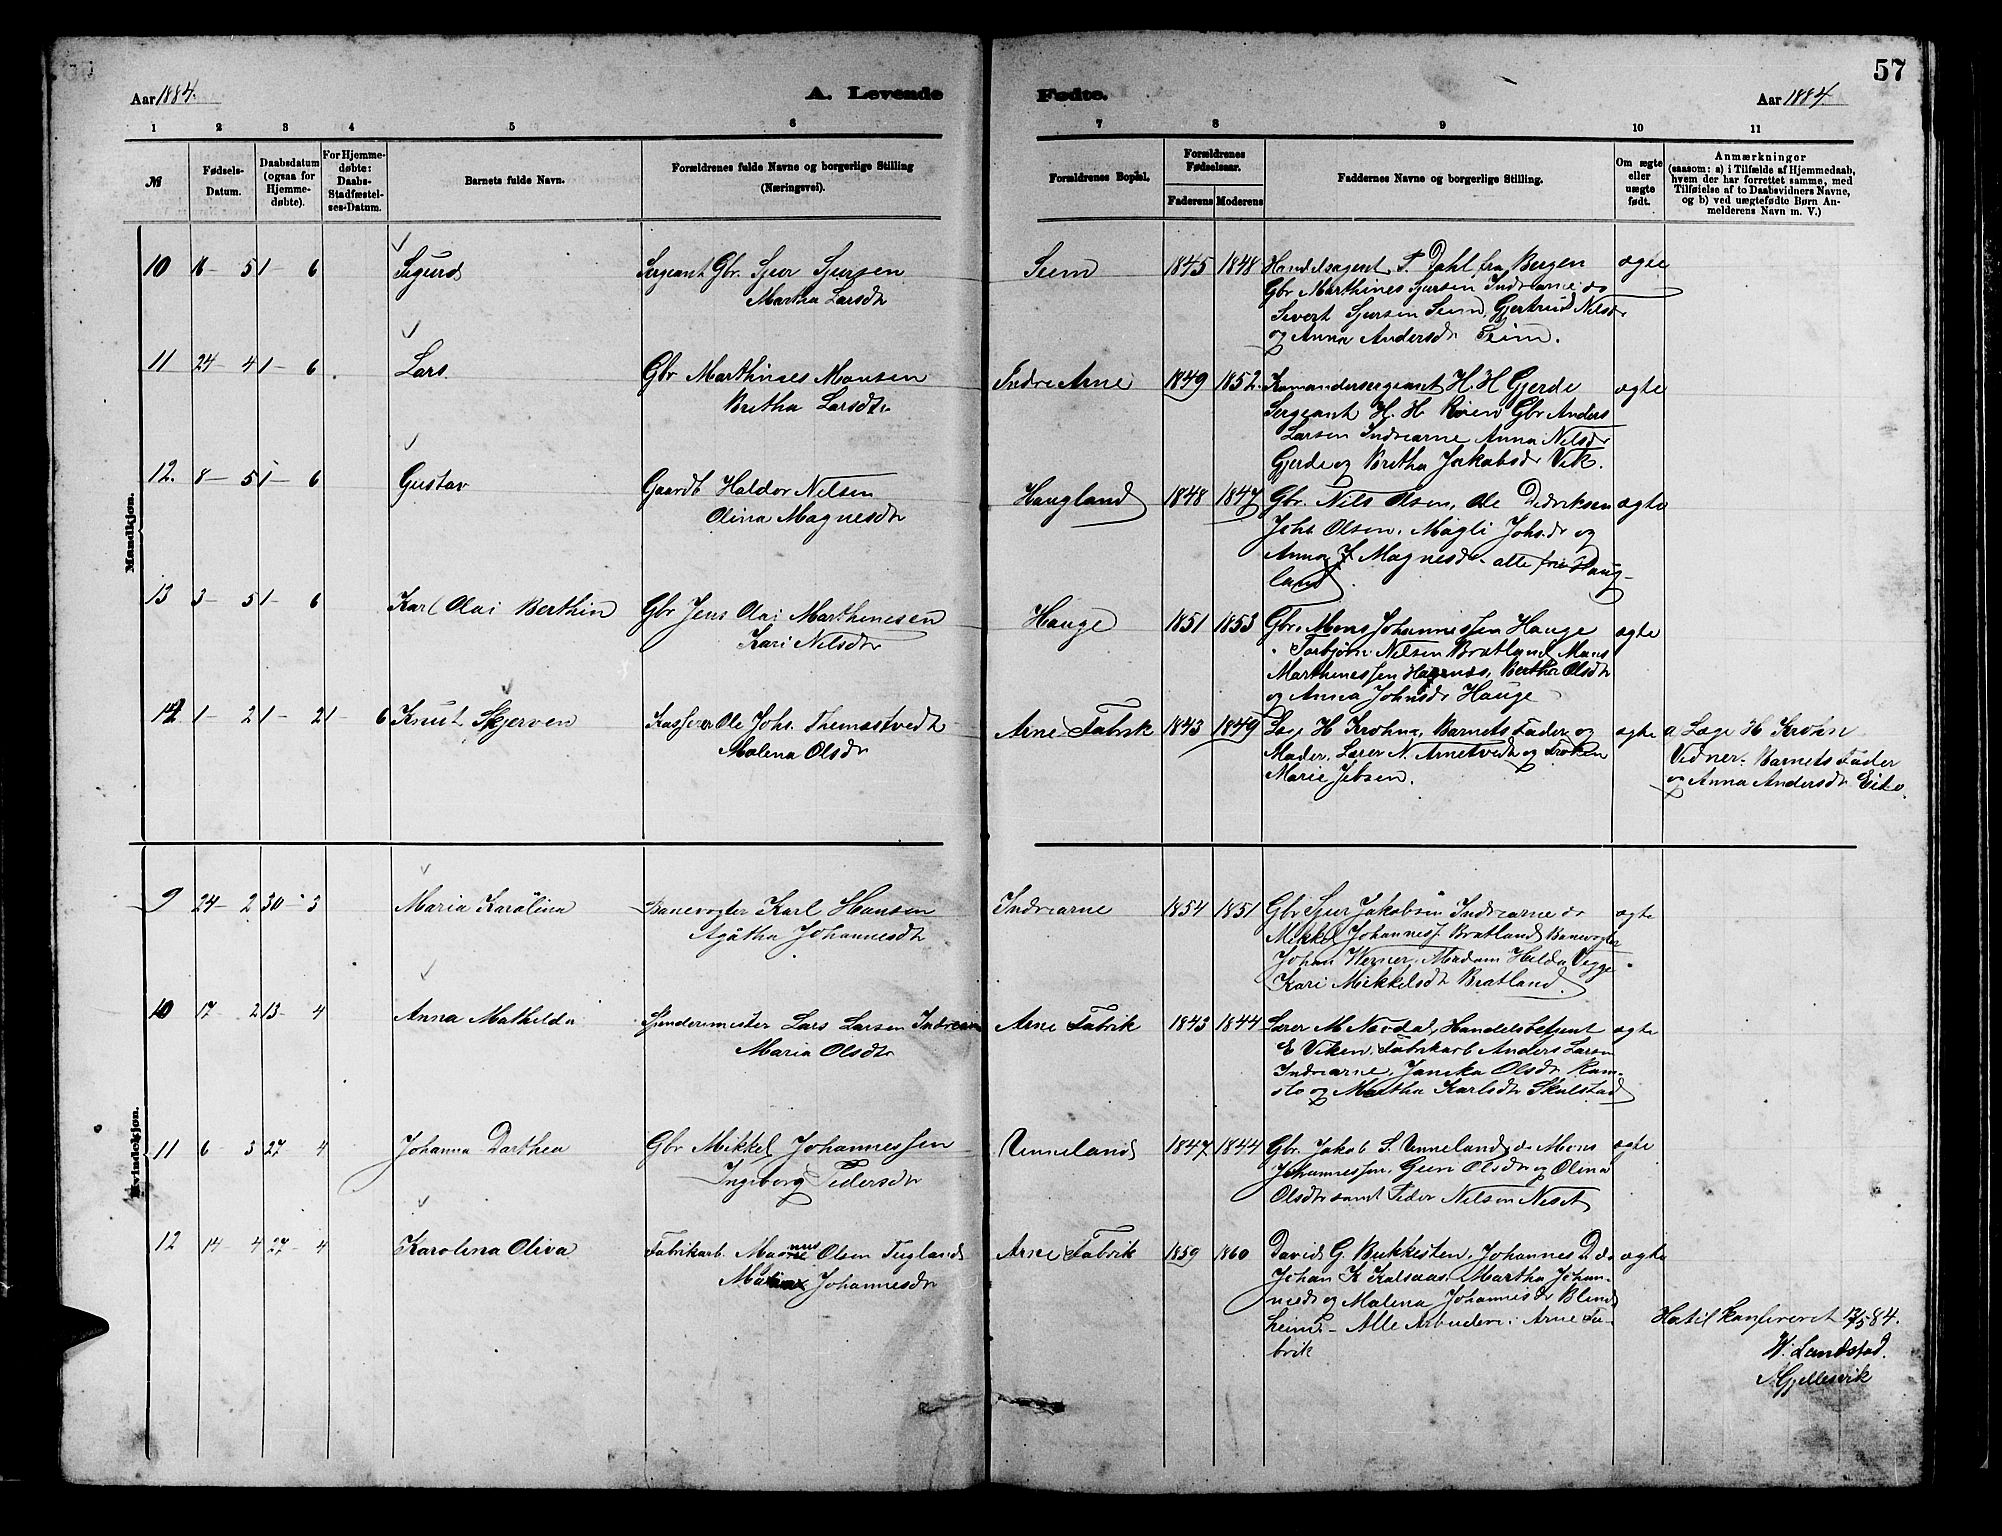 57
Aar 1884.
A. Levende
Fødte.
Aar 1884.
1 2 3 4 5 6 7 8 9 10 11
№
Fødsels-
Datum.
Daabsdatum
(ogsaa for
Hjemme-
døbte).
For Hjemme-
døbte:
Daabs-
Stadfæstel-
ses-Datum.
Barnets fulde Navn.
Forældrenes fulde Navne og borgerlige Stilling
(Næringsvei).
Forældrenes Bopæl.
Forældrenes
Fødselsaar.
Faderens Moderens
Faddernes Navne og borgerlige Stilling.
Om ægte
eller
uægte
født.
Anmærkninger
(saasom: a) i Tilfælde af Hjemmedaab,
hvem der har forrettet samme, med
Tilføielse af to Daabsvidners Navne,
og b) ved uægtefødte Børn An-
melderens Navn m. V.)
Mandkjøn.
10 16 - 5 1 - 6 Sigurd Sergeant Gbr. Sjur Sjursen Seim 1845 1848 Handelsagent T. Dahl fra Bergen ægte
Martha Larsdtr
Gbr Marthines Sjursen Indrearne do
Sivert Sjursen Seim, Gjertrud Nilsdr
og Anna Andersdr Seim.
11 24 - 4 1 - 6 Lars. Gbr Marthines Monsen Indre Arne 1849 1852. Komandersergeant H. H Gjerde ægte
Britha Larsdtr
Sergeant H. H. Røien Gbr Anders
Larsen Indrearne Anna Nilsdr
Gjerde og Britha Jakobsdr Vik.
12. 8 - 5 1 - 6 Gustav Gaardb Haldor Nilsen Haugland 1848 1847 Gbr. Nils Olsen, Ole Didriksen ægte
Olina Magnesdtr
Johs Olsen, Magli Johsdr og
Anna J. Magnesdr - alle fra Haug-
land.
13 3 - 5 1 - 6 Karl Olai Berthin Gbr Jens Olai Marthinesen Hauge 1851 1853 Gbr. Mons Johannessen Hauge ægte
Kari Nilsdtr
Torbjørn Nilsen Bratland, Mons
Marthinessen Hagenæs, Bertha Olsdtr
og Anna Johnsdr Hauge
14 1 - 2 1 - 2 1 - 6 Knut Skjerven Kasserer Ole Johs. Themastvedt Arne Fabrik 1843 1849 Læge H Krohn, Barnets Fader og ægte a Læge H Krohn
Malena Olsdr
Moder. Lærer N. Arnetvedt og Frøken Vidner. Barnets Fader
Marie Jebsen. og Anna Andersdr Eike.
Kvindekjøn.
9 24 - 2 30 - 3 Maria Karolina Banevogter Karl Hansen Indrearne 1854 1851 Gbr Sjur Jakobsen Indrearne do ægte
Agatha Johannesdtr
Mikkel Johannesf. Bratland, Banevogter
Johan Werner, Madam Hilda Vigge
Kari Mikkelsdtr Bratland.
10 17 2 13 - 4 Anna Mathilda Spindemester Lars Larsen Indrearne Arne Fabrik 1843 1844 Lærer M. Nordal, Handelsbetjent ægte
Maria Olsdtr
E Viken, Fabrikarb Anders Larsen
Indrearne, Janika Olsdtr Ram-
slo og Martha Karlsdtr Skulstad
11 6 - 3 27 - 4 Johanna Darthea Gbr Mikkel Johannessen Unneland 1847 1844 Gbr. Jakob S. Unneland, do Mons ægte
Ingeborg Pedersdtr
Johannessen, Guri Olsdtr og Olina
Olsdtr samt Peder Nilsen Neset
12 14 - 4 27 - 4 Karolina Oliva Fabrikarb. Magnus Olsen Fugland Arne Fabrik 1859 1860 David G. Bukkesten, Johannes D. do ægte
Malina Johannesdtr
Johan K Kalsaas, Martha Johan-
nesdr og Malena Johannesdr Blind-
heim - Alle Arbeidere i Arne Fa-
brik
Hertil konfereret 17/5 84.
W. Landstad.
A Gjellesvik